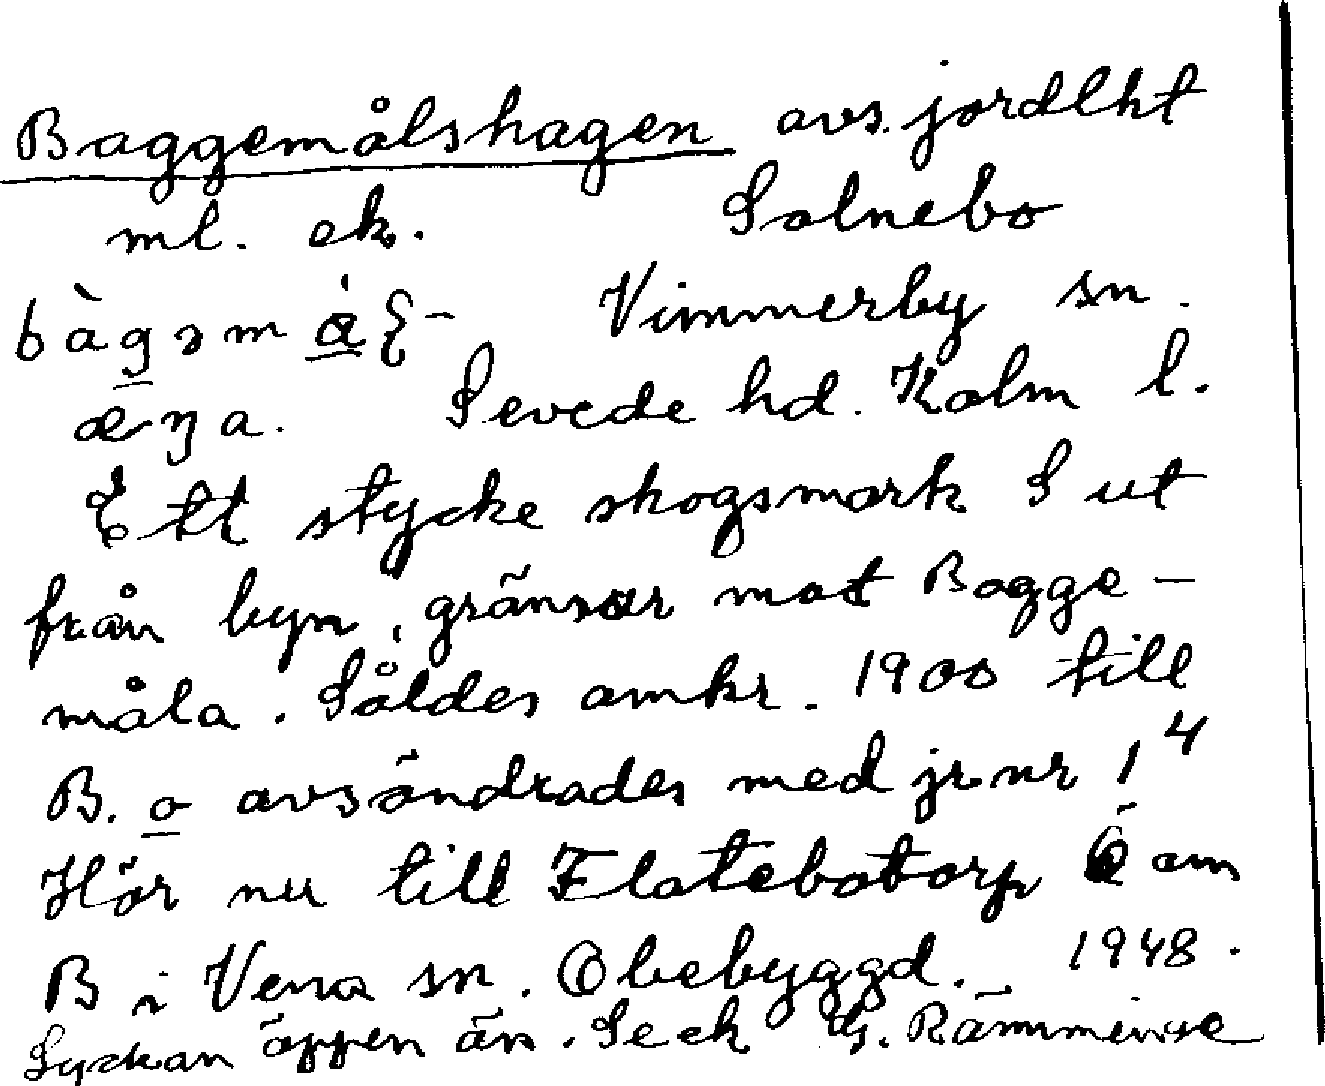 Baggemålshagen avs. jordlht
ml. ek. Solnebo
bàgəmå̀ʃ- Vimmerby sn.
æŋa. Sevede hd. Kalm l.
Ett stycke skogsmark S ut
från byn, gränsar mot Bagge-
måla. Såldes omkr. 1900 till
B. o avsöndrades med jr nr 1⁴
Hör nu till Flatebotorp Ö om
B i Vena sn. Obebyggd. 1948.
Lyckan öppen än. Se ek G. Rämminge